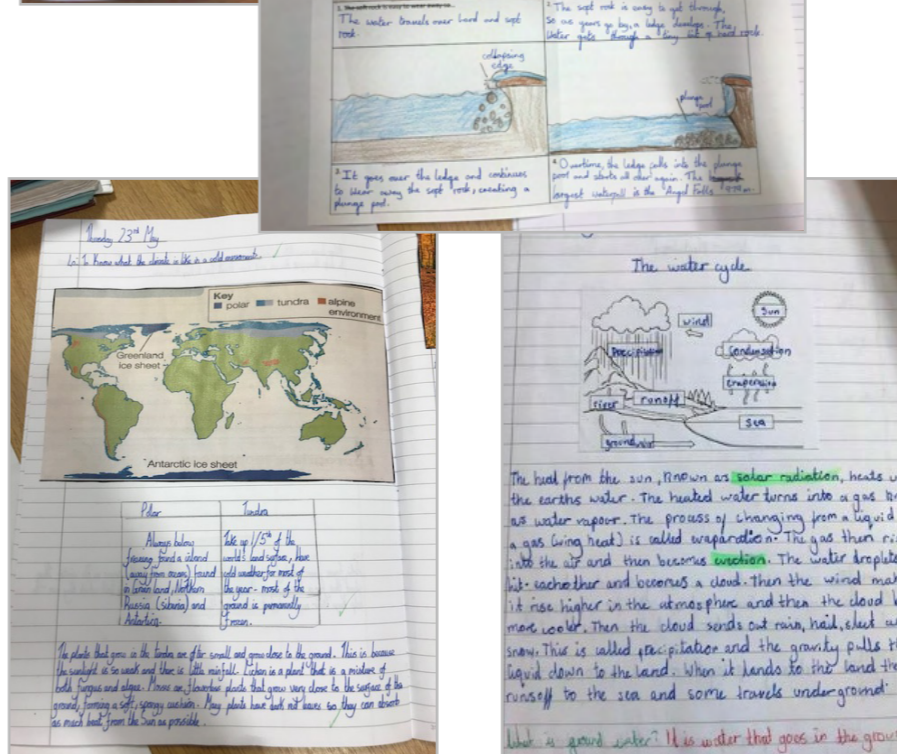 1. The soft rock is easy to wear away so
The water travels over hard and soft
rock.
2. The soft rock is easy to get through,
so as years go by, a ledge develops. The
water gets through a tiny bit of hard rock.
collapsing
edge
plunge
pool
3. It goes over the ledge and continues
to wear away the soft rock, creating a
plunge pool.
4. Overtime, the ledge falls into the plunge
pool and starts all other again. The
largest waterfall is the "Angel Falls" 979m.
Thursday 23rd May
L.I. To Know what the climate is like in a cold environment.
Key
polar
tundra
alpine
environment
Greenland
ice sheet
Antarctic ice sheet
Polar
Always below
freezing found a inland
(away from oceans) found
in Greenland, Northern
Russia (siberia) and
Antartica.
Tundra
Take up 1/5th of the
world's land surface, have
cold weather for most of
the year - most of the
ground is permanently
frozen.
The plants that grow in the tundra are ofter small and grow close to the ground. This is because
the sunlight is so weak and there is little rainfall. Lichen is a plant that is a mixture of
both fungus and algae. Mosses are flowerless plants that grow very close to the surface of the
ground, forming a soft, spongy cushion. Many plants have dark red leaves so they can absorb
as much heat from the Sun as possible.
The water cycle
wind
Sun
Precipitation
Condensation
Evaporation
river
runoff
Sea
The heat from the sun, known as solar radiation, heats u
the earths water. The heated water turns into a gas kn
as water vapour. The process of changing from a liquid
a gas (using heat) is called evaparation. The gas then ri
into the air and then becomes evection. The water droplets
hit eachother and becomes a cloud. Then the wind mak
it rise higher in the atmosphere and then the cloud b
more cooler. Then the cloud sends out rain, hail, sleet a
snow. This is called precipitation and the gravity pulls th
liquid down to the land. When it lands to the land the
runsoff to the sea and some travels underground.
What is ground water? It is water that goes in the groun